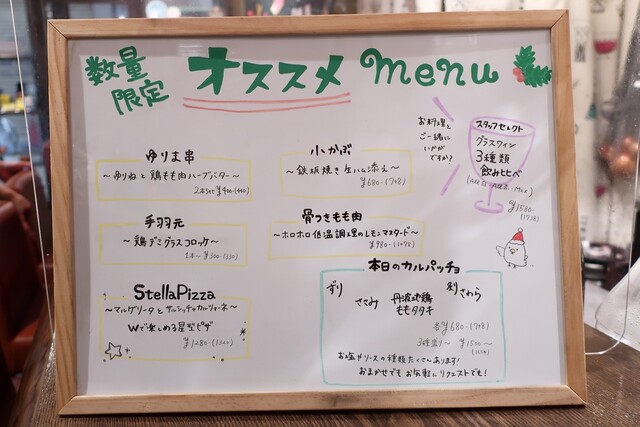 数量
限定
オススメ menu
お料理と
ご一緒に
いかが
ですか?
スタッフセレクト
グラスワイン
3種類
飲み比べ
¥1580-
(1738)
ゆりま串
〜ゆりねと鶏もも肉ハーブバター〜
2本set ¥400-(440)
小かぶ
〜鉄板焼き生ハム添え〜
¥680-(748)
手羽元
〜鶏デミグラスコロッケ〜
1本〜 ¥300-(330)
骨つきもも肉
〜ホロホロ低温調理のレモンマスタード〜
¥980-(1078)
StellaPizza
〜マルゲリータとサルシッチャカルツォーネ〜
Wで楽しめる星型ピザ
本日のカルパッチョ
ずり
ささみ
丹波地鶏
ももタタキ
さわら
各¥680-(748)
3種盛り〜 ¥1500〜
(1650)
お塩やソースの種類たくさ〜んあります!
おまかせでもお気軽にリクエストでも!